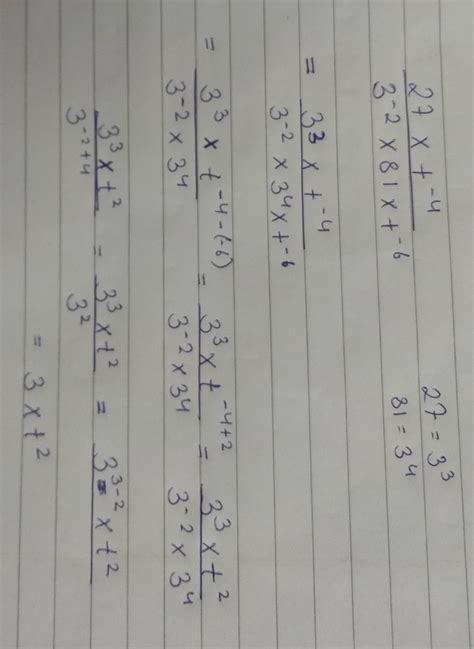 27 × t⁻⁴ / 3⁻² × 81 × t⁻⁶    27 = 3³
81 = 3⁴
= 3³ × t⁻⁴ / 3⁻² × 3⁴ × t⁻⁶
= 3³ × t⁻⁴⁻⁽⁻⁶⁾ / 3⁻² × 3⁴ = 3³ × t⁻⁴⁺² / 3⁻² × 3⁴ = 3³ × t² / 3⁻² × 3⁴
3³ × t² / 3⁻²⁺⁴ = 3³ × t² / 3² = 3³⁻² × t²
= 3 × t²